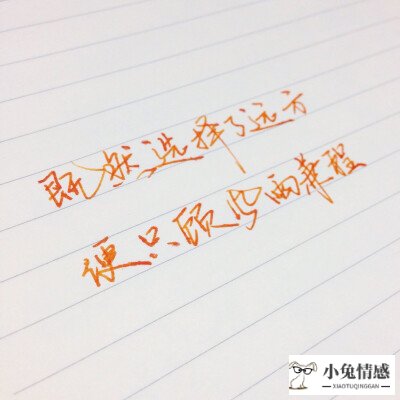 既然选择了远方
便只顾风雨兼程
小兔情感
XIAOTUQINGGAN